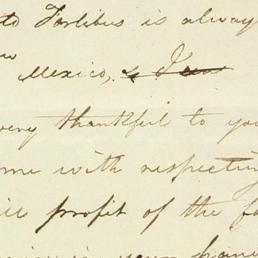 to Forlibus is alway
Mexico, &
very thankful to you
me with respecting
profit of the fa
in your hand